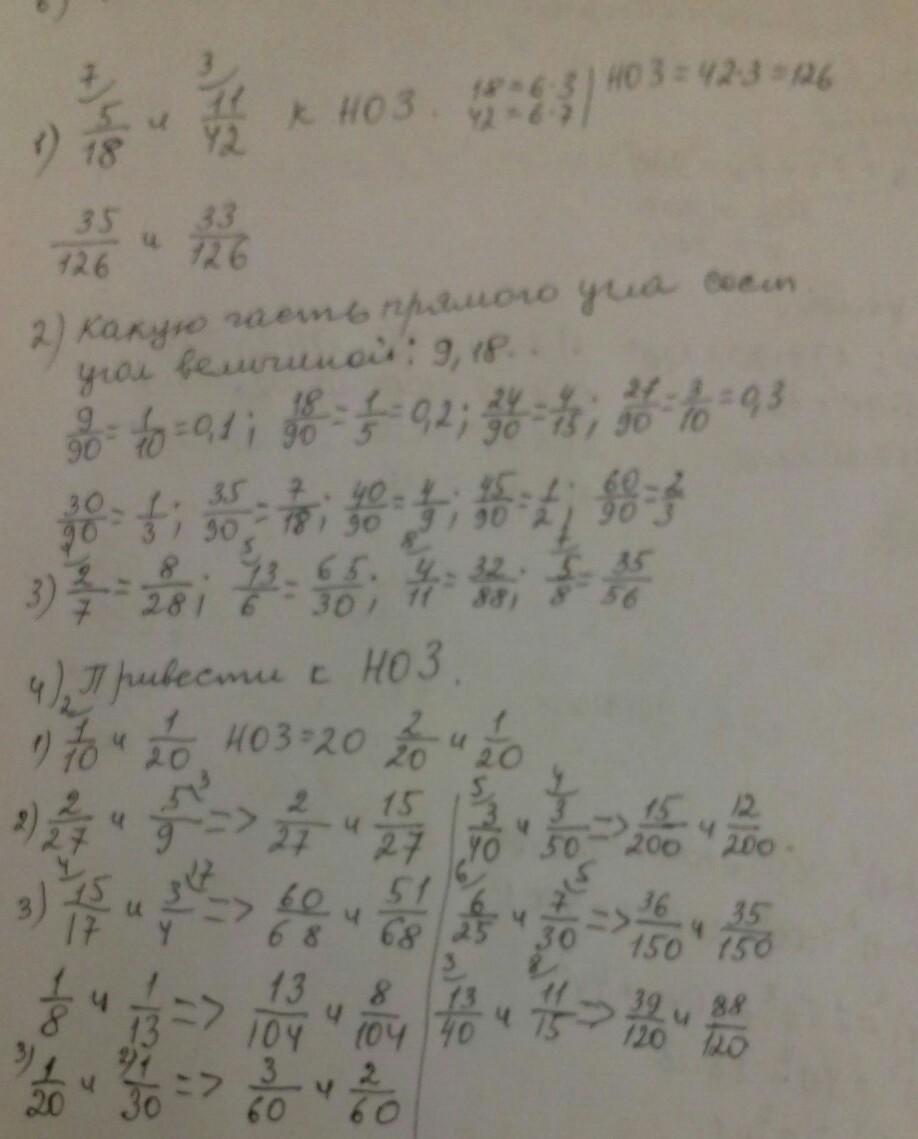 в)
1) 7/ 5/18 и 3/ 11/42 к НОЗ. 18=6·3 | НОЗ = 42·3=126
42=6·7
35/126 и 33/126
2) Какую часть прямого угла сост.
угол величиной: 9, 18..
9/90=1/10=0,1; 18/90=1/5=0,2; 24/90=4/15; 27/90=3/10=0,3
30/90=1/3; 35/90=7/18; 40/90=4/9; 45/90=1/2; 60/90=2/3
3) 2/7=8/28; 13/6=65/30; 4/11=32/88; 5/8=35/56
4) Привести к НОЗ.
1) 1/10 и 1/20 НОЗ=20 2/20 и 1/20
2) 2/27 и 5/9 => 2/27 и 15/27
3) 15/17 и 3/4 => 60/68 и 51/68
1/8 и 1/13 => 13/104 и 8/104
3) 1/20 и 2) 1/30 => 3/60 и 2/60
3/40 и 3/50 => 15/200 и 12/200.
6/25 и 7/30 => 36/150 и 35/150
13/40 и 11/15 => 39/120 и 88/120